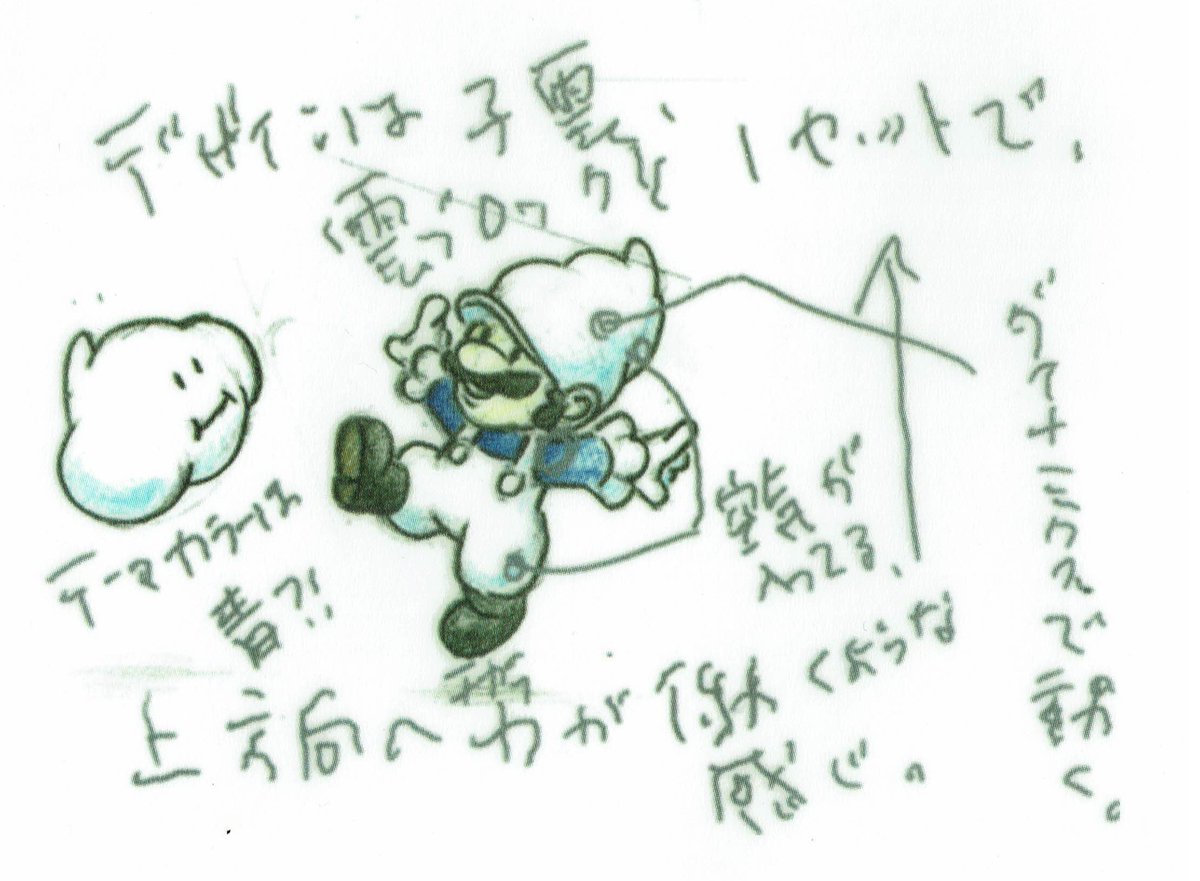 デザインは子雲と1セットで、
雲
テーマカラーは
青?!
空気が
入ってる。
上方向へ力が働くような
感じ。
で動く。